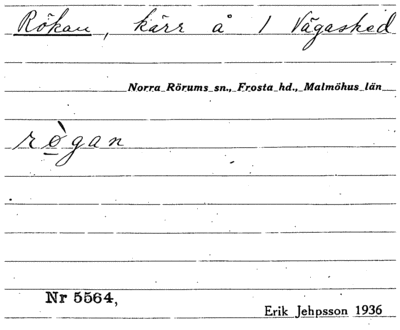 Rökan, kärr å 1 Vägasked
Norra Rörums sn., Frosta hd., Malmöhus län
rògan
Nr 5564,
Erik Jehpsson 1936